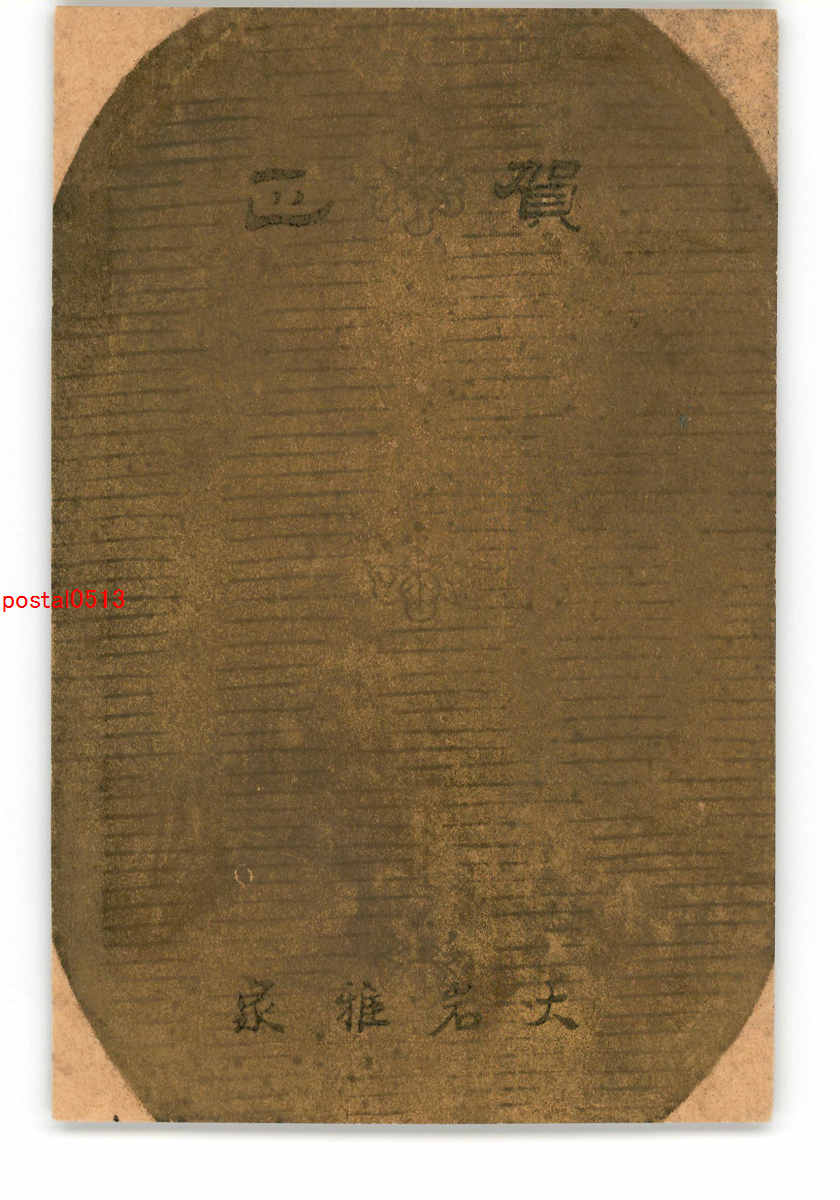 賀正
postal0513
大岩雅家